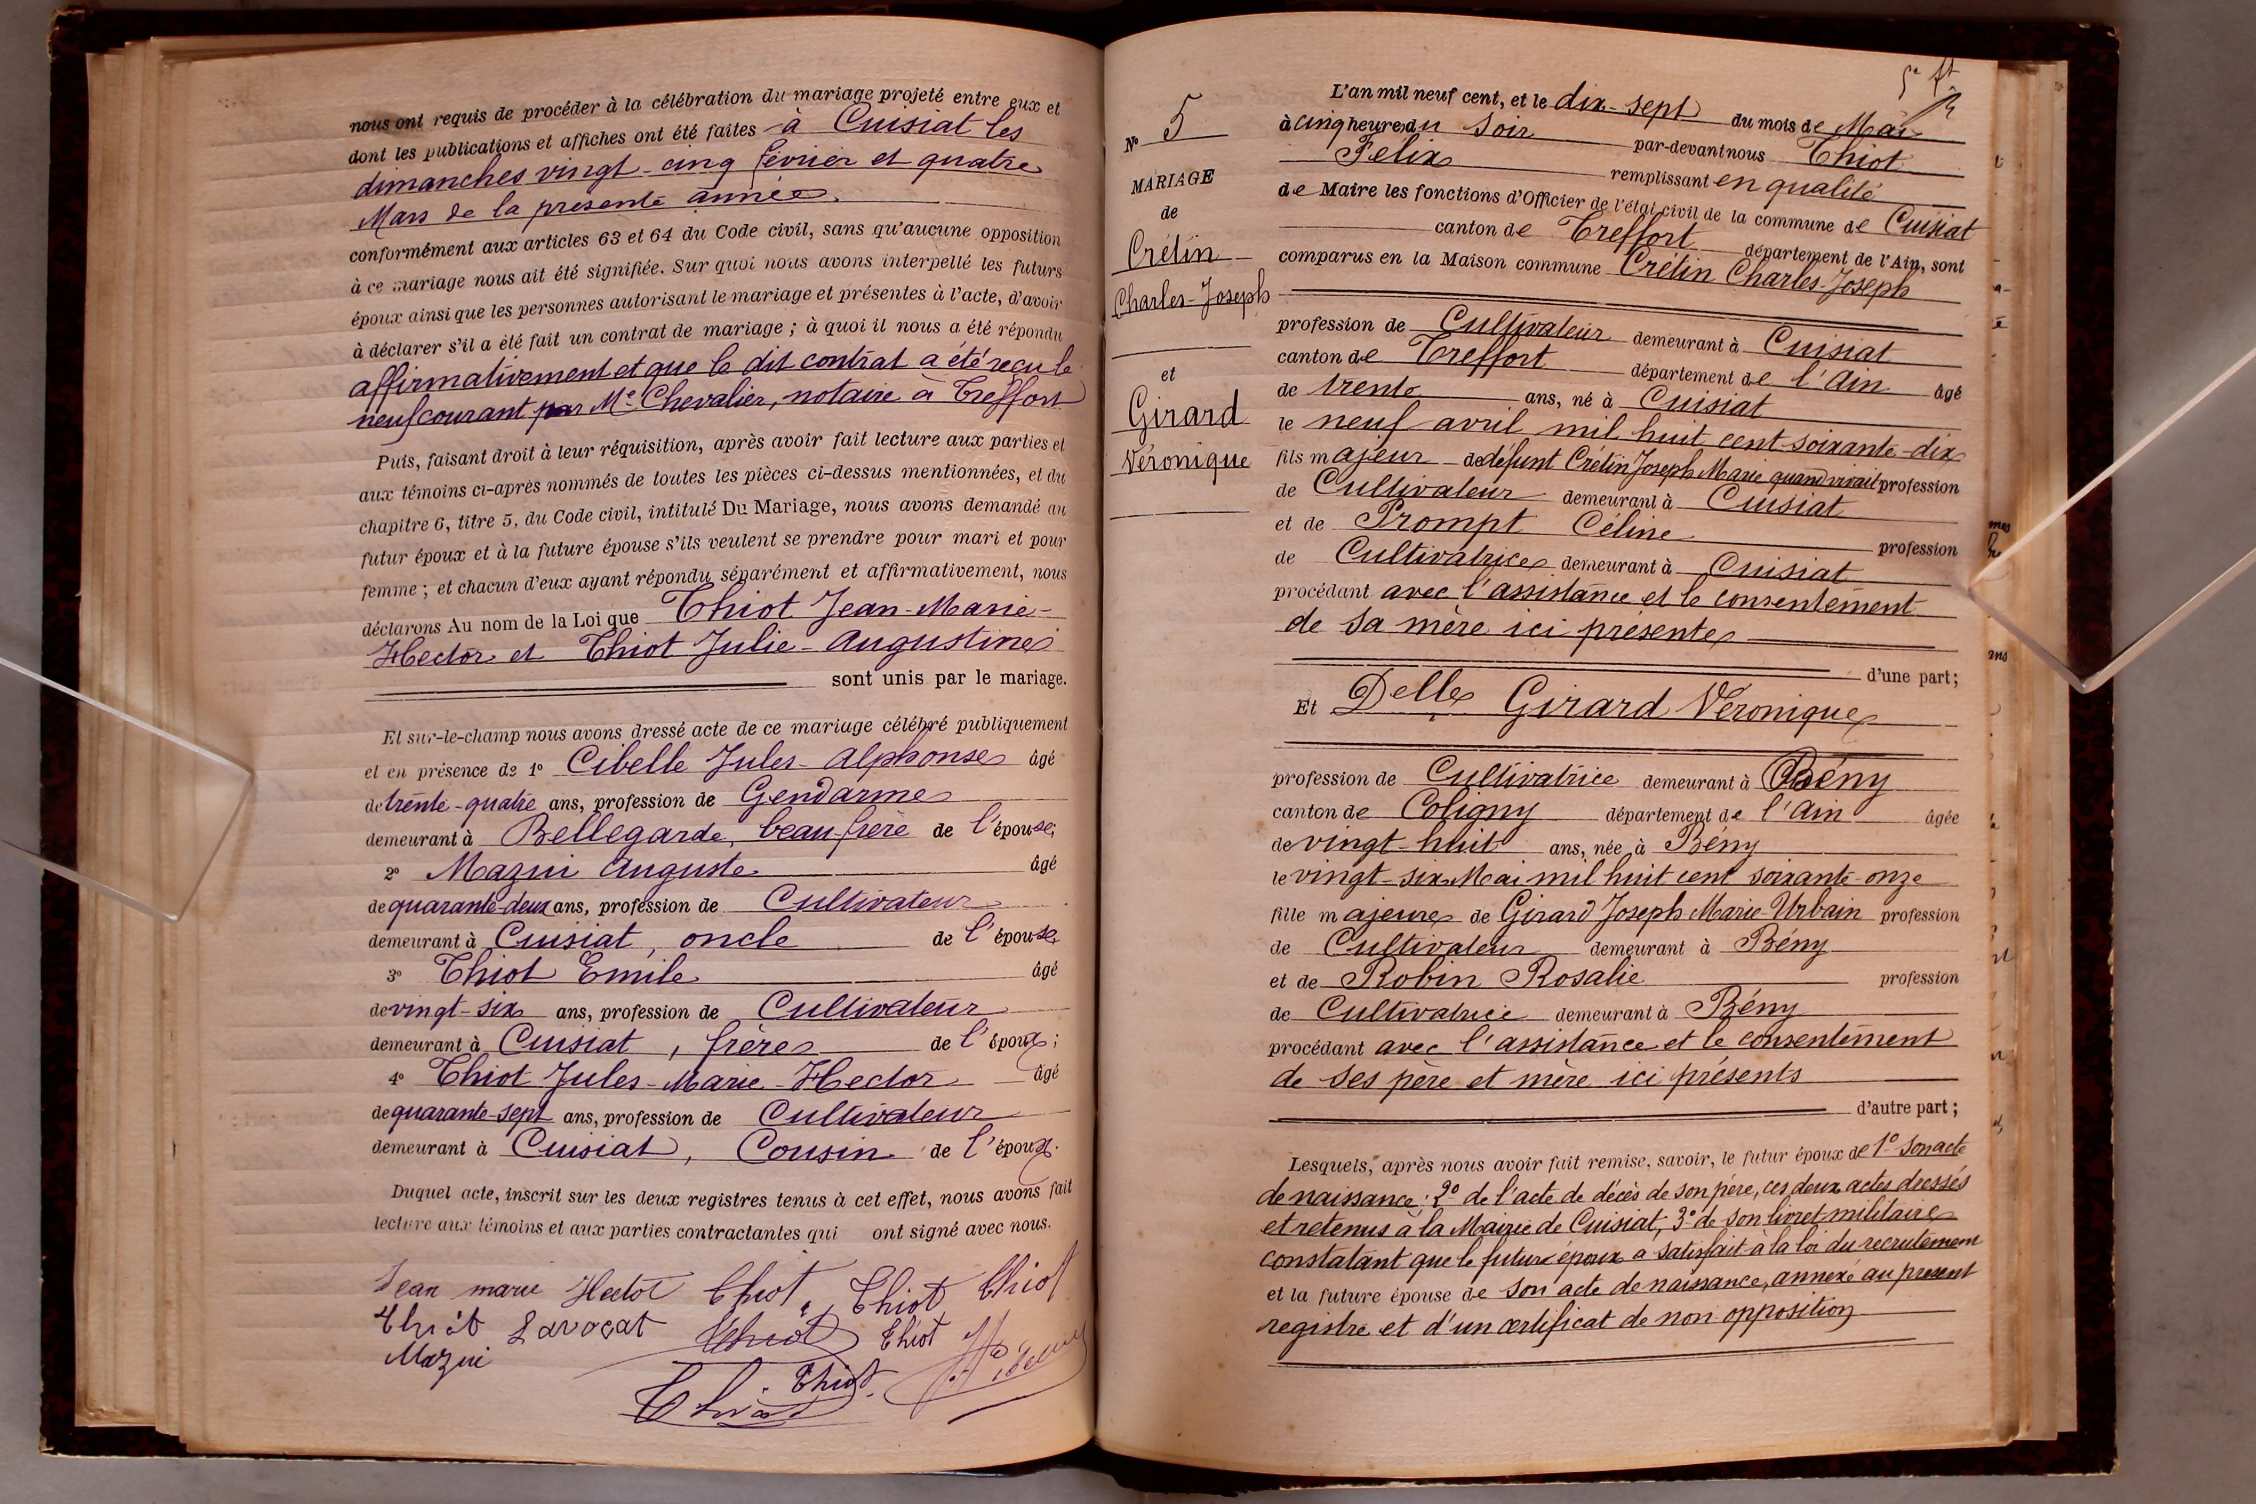 nous ont requis de procéder à la célébration du mariage projeté entre eux et
dont les publications et affiches ont été faites à Cuisiat les
dimanches vingt-cinq février et quatre
Mars de la présente année.
conformément aux articles 63 et 64 du Code civil, sans qu'aucune opposition
à ce mariage nous ait été signifiée. Sur quoi nous avons interpellé les futurs
époux ainsi que les personnes autorisant le mariage et présentes à l'acte, d'avoir
à déclarer s'il a été fait un contrat de mariage ; à quoi il nous a été répondu
affirmativement et que le dit contrat a été reçu le
neuf courant par Me Chevalier, notaire à Treffort
Puis, faisant droit à leur réquisition, après avoir fait lecture aux parties et
aux témoins ci-après nommés de toutes les pièces ci-dessus mentionnées, et du
chapitre 6, titre 5, du Code civil, intitulé Du Mariage, nous avons demandé au
futur époux et à la future épouse s'ils veulent se prendre pour mari et pour
femme ; et chacun d'eux ayant répondu séparément et affirmativement, nous
déclarons Au nom de la Loi que Thiot Jean-Marie-
Hector et Thiot Julie-Augustine
sont unis par le mariage.
Et sur-le-champ nous avons dressé acte de ce mariage célébré publiquement
et en présence de 1° Cibelle Jules-Alphonse âgé
de trente-quatre ans, profession de Gendarme
demeurant à Bellegarde, beau-frère de l'épouse;
2° Mazui Auguste âgé
de quarante-deux ans, profession de Cultivateur
demeurant à Cuisiat, oncle de l'épouse
3° Thiot Emile âgé
de vingt-six ans, profession de Cultivateur
demeurant à Cuisiat, frère de l'époux;
4° Thiot Jules-Marie-Hector âgé
de quarante-sept ans, profession de Cultivateur
demeurant à Cuisiat, Cousin de l'époux.
Duquel acte, inscrit sur les deux registres tenus à cet effet, nous avons fait
lecture aux témoins et aux parties contractantes qui ont signé avec nous.
Jean marie Hector Thiot Thiot Thiot
Thiot Lavocat Thiot Thiot
Mazui
Thiot
Thiot
N° 5
MARIAGE
de
Crétin
Charles-Joseph
et
Girard
Véronique
L'an mil neuf cent, et le dix-sept du mois de Mai
à cinq heures du soir par-devant nous Thiot
Felix remplissant en qualité
de Maire les fonctions d'Officier de l'état civil de la commune de Cuisiat
canton de Treffort département de l'Ain, sont
comparus en la Maison commune Crétin Charles-Joseph
profession de Cultivateur demeurant à Cuisiat
canton de Treffort département de l'Ain âgé
de trente ans, né à Cuisiat
le neuf avril mil huit cent soixante-dix
fils majeur de défunt Crétin Joseph Marie quand vivait profession
de Cultivateur demeurant à Cuisiat
et de Prompt Céline profession
de Cultivatrice demeurant à Cuisiat
procédant avec l'assistance et le consentement
de sa mère ici présente
d'une part;
Et Delle Girard Véronique
profession de Cultivatrice demeurant à Bény
canton de Coligny département de l'Ain âgée
de vingt-huit ans, née à Bény
le vingt-six Mai mil huit cent soixante-onze
fille majeure de Girard Joseph Marie Urbain profession
de Cultivateur demeurant à Bény
et de Robin Rosalie profession
de Cultivatrice demeurant à Bény
procédant avec l'assistance et le consentement
de ses père et mère ici présents
d'autre part;
Lesquels, après nous avoir fait remise, savoir, le futur époux de 1° son acte
de naissance; 2° de l'acte de décès de son père, ces deux actes dressés
et retenus à la Mairie de Cuisiat; 3° de son livret militaire
constatant que le futur époux a satisfait à la loi du recrutement
et la future épouse de son acte de naissance, annexé au présent
registre et d'un certificat de non opposition